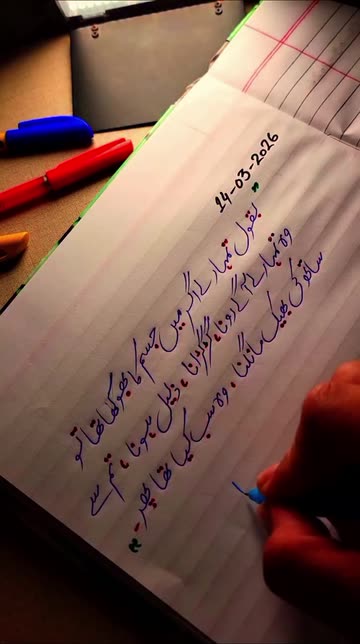 14-03-2026
"بقول تمہارے اگر میں جسم کا بھوکا تھا تو
وہ تمہارے آگے رونا، گڑگڑانا، ذلیل ہونا، تم سے
ساتھ کی بھیک مانگنا، وہ سب کیا تھا پھر۔"